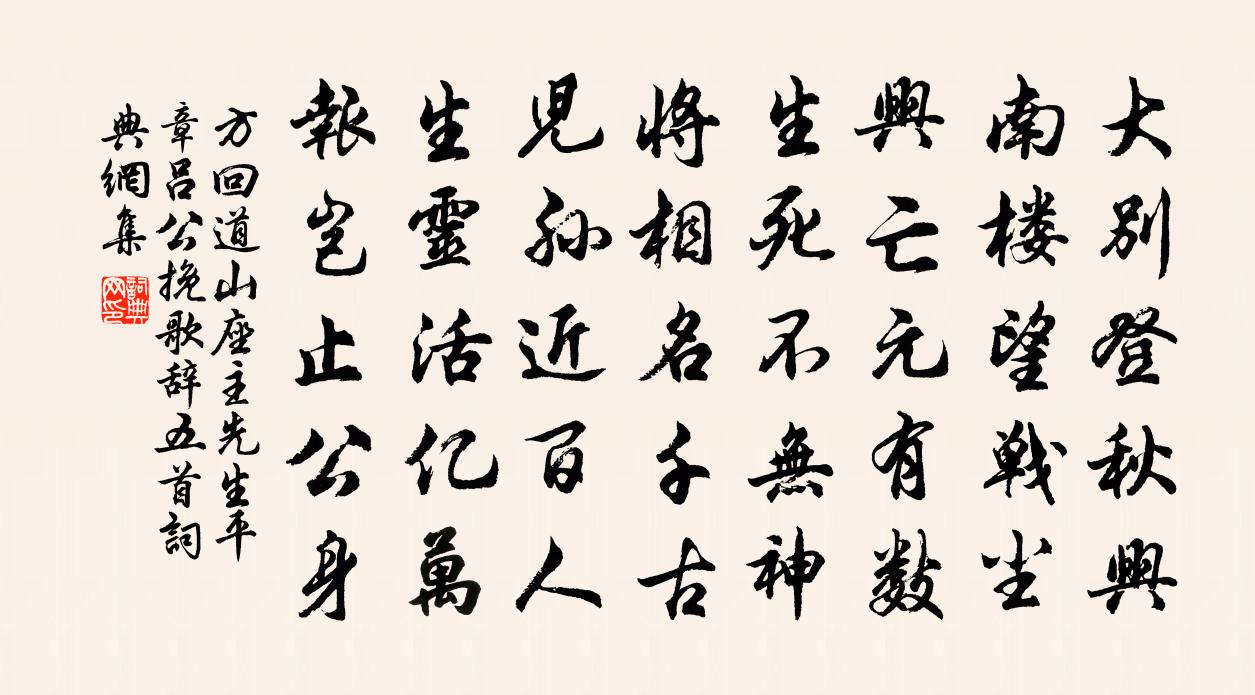 大别登秋興
南楼望戰尘
興亡元有數
生死不無神
將相名千古
兒孫近百人
生靈活亿萬
報岂止公身
方回道山座主先生平
章呂公挽歌辞五首詞
典網集
詞典网印